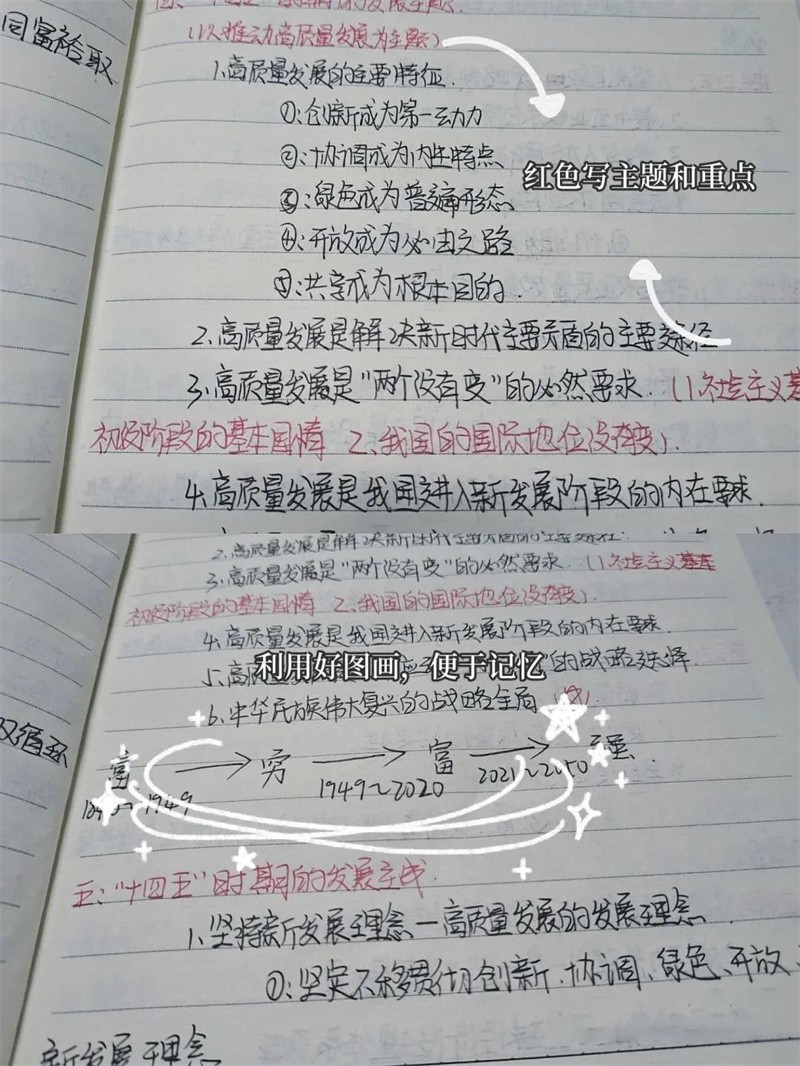 同富裕取
四、"十四五"时期的发展主题
(以推动高质量发展为主题)
1.高质量发展的主要特征.
①:创新成为第一动力
②:协调成为内生特点
③:绿色成为普遍形态
④:开放成为必由之路
⑤:共享成为根本目的.
红色写主题和重点
2.高质量发展是解决新时代主要矛盾的主要途径
3.高质量发展是"两个没有变"的必然要求.(1.社会主义基
初级阶段的基本国情 2.我国的国际地位没有变).
4.高质量发展是我国进入新发展阶段的内在要求.
2.高质量发展是解决新时代主要矛盾的主要途径.
3.高质量发展是"两个没有变"的必然要求.(1.社会主义基本
初级阶段的基本国情 2.我国的国际地位没有变).
4.高质量发展是我国进入新发展阶段的内在要求.
5.高 的战略选择
利用好图画，便于记忆
6.中华民族伟大复兴的战略全局
双循环
富 穷 富 强.
1840~1949 1949~2020 2021~2050
五:"十四五"时期的发展主线.
1.坚持新发展理念—高质量发展的发展理念.
①:坚定不移贯彻创新、协调、绿色、开放、
新发展理念